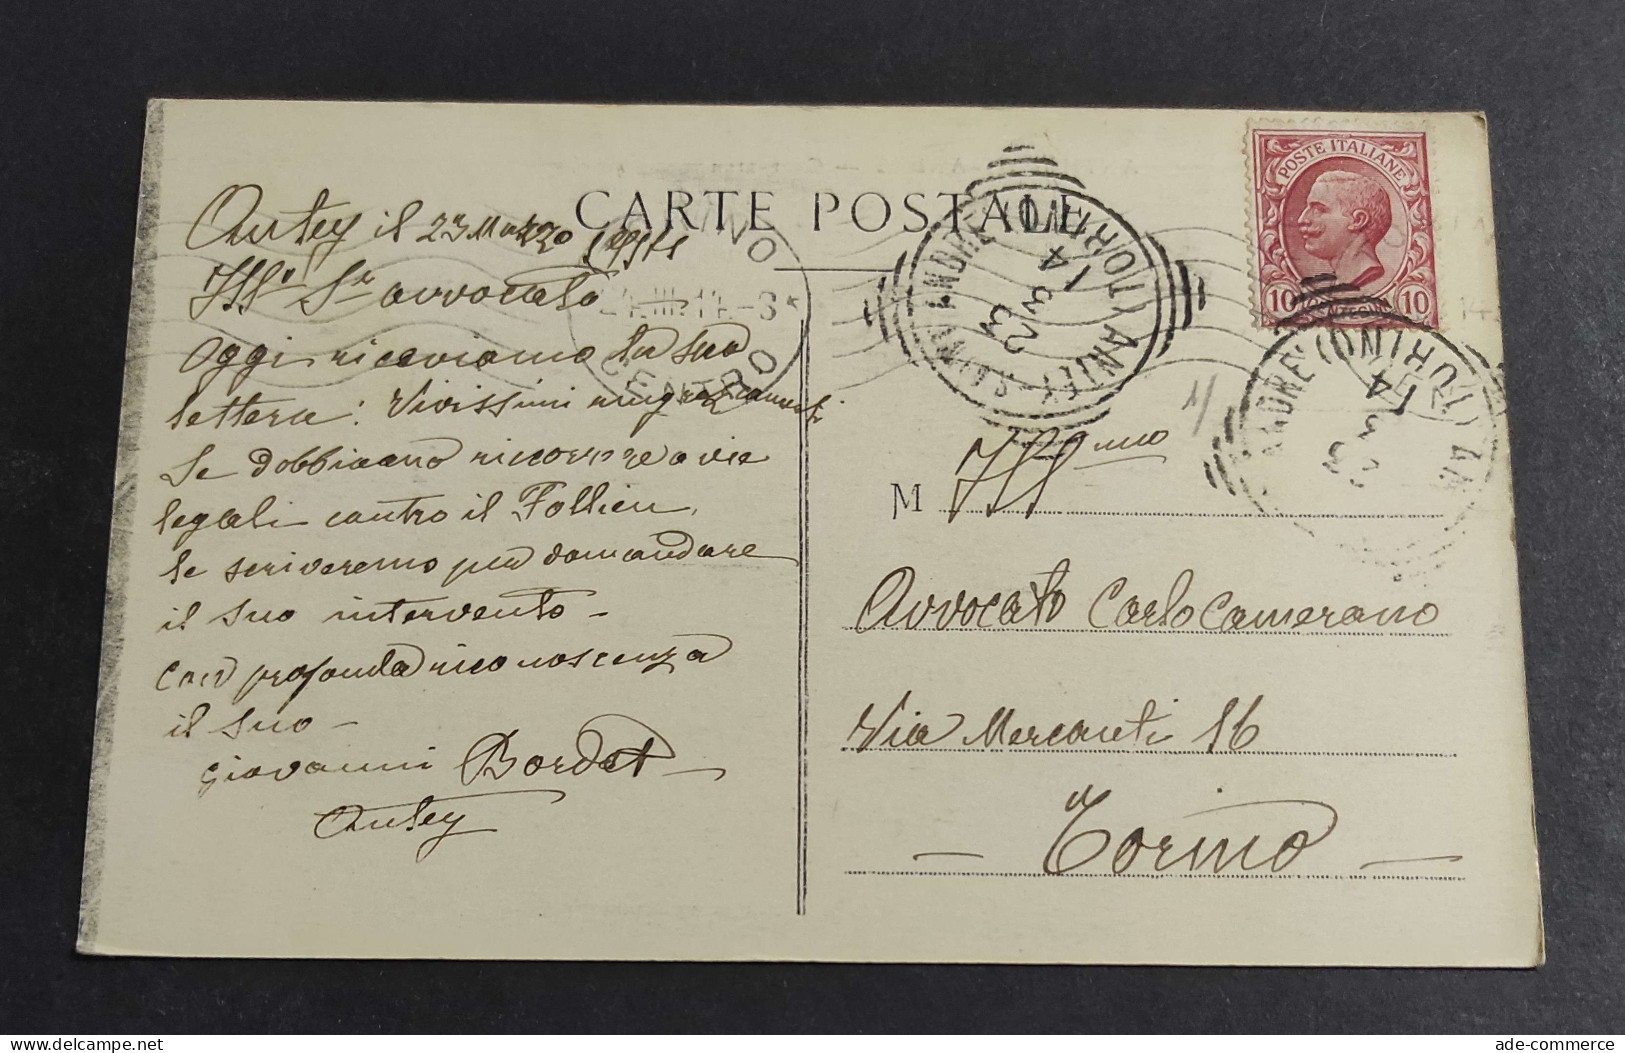 CARTE POSTALE
Antey il 23 Marzo 1914
Ill.o Sr avvocato
Oggi riceviamo la sua
lettera: Vivissimi ringraziamenti
Se dobbiamo ricorrere a vie
legali contro il Follien,
le scriveremo per domandare
il suo intervento -
Con profonda riconoscenza
il suo -
Giovanni Bordet
Antey
M Ill.mo
Avvocato Carlo Camerano
Via Mercanti 16
- Torino -
POSTE ITALIANE
10 CENTESIMI 10
ANTEY ANDRE (TORINO)
23 3 14
TORINO
CENTRO
ANDRE (TORINO)
3 14
ade-commerce